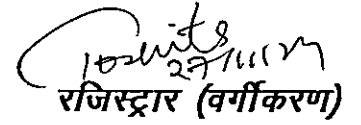 27/11/24
रजिस्ट्रार (वर्गीकरण)